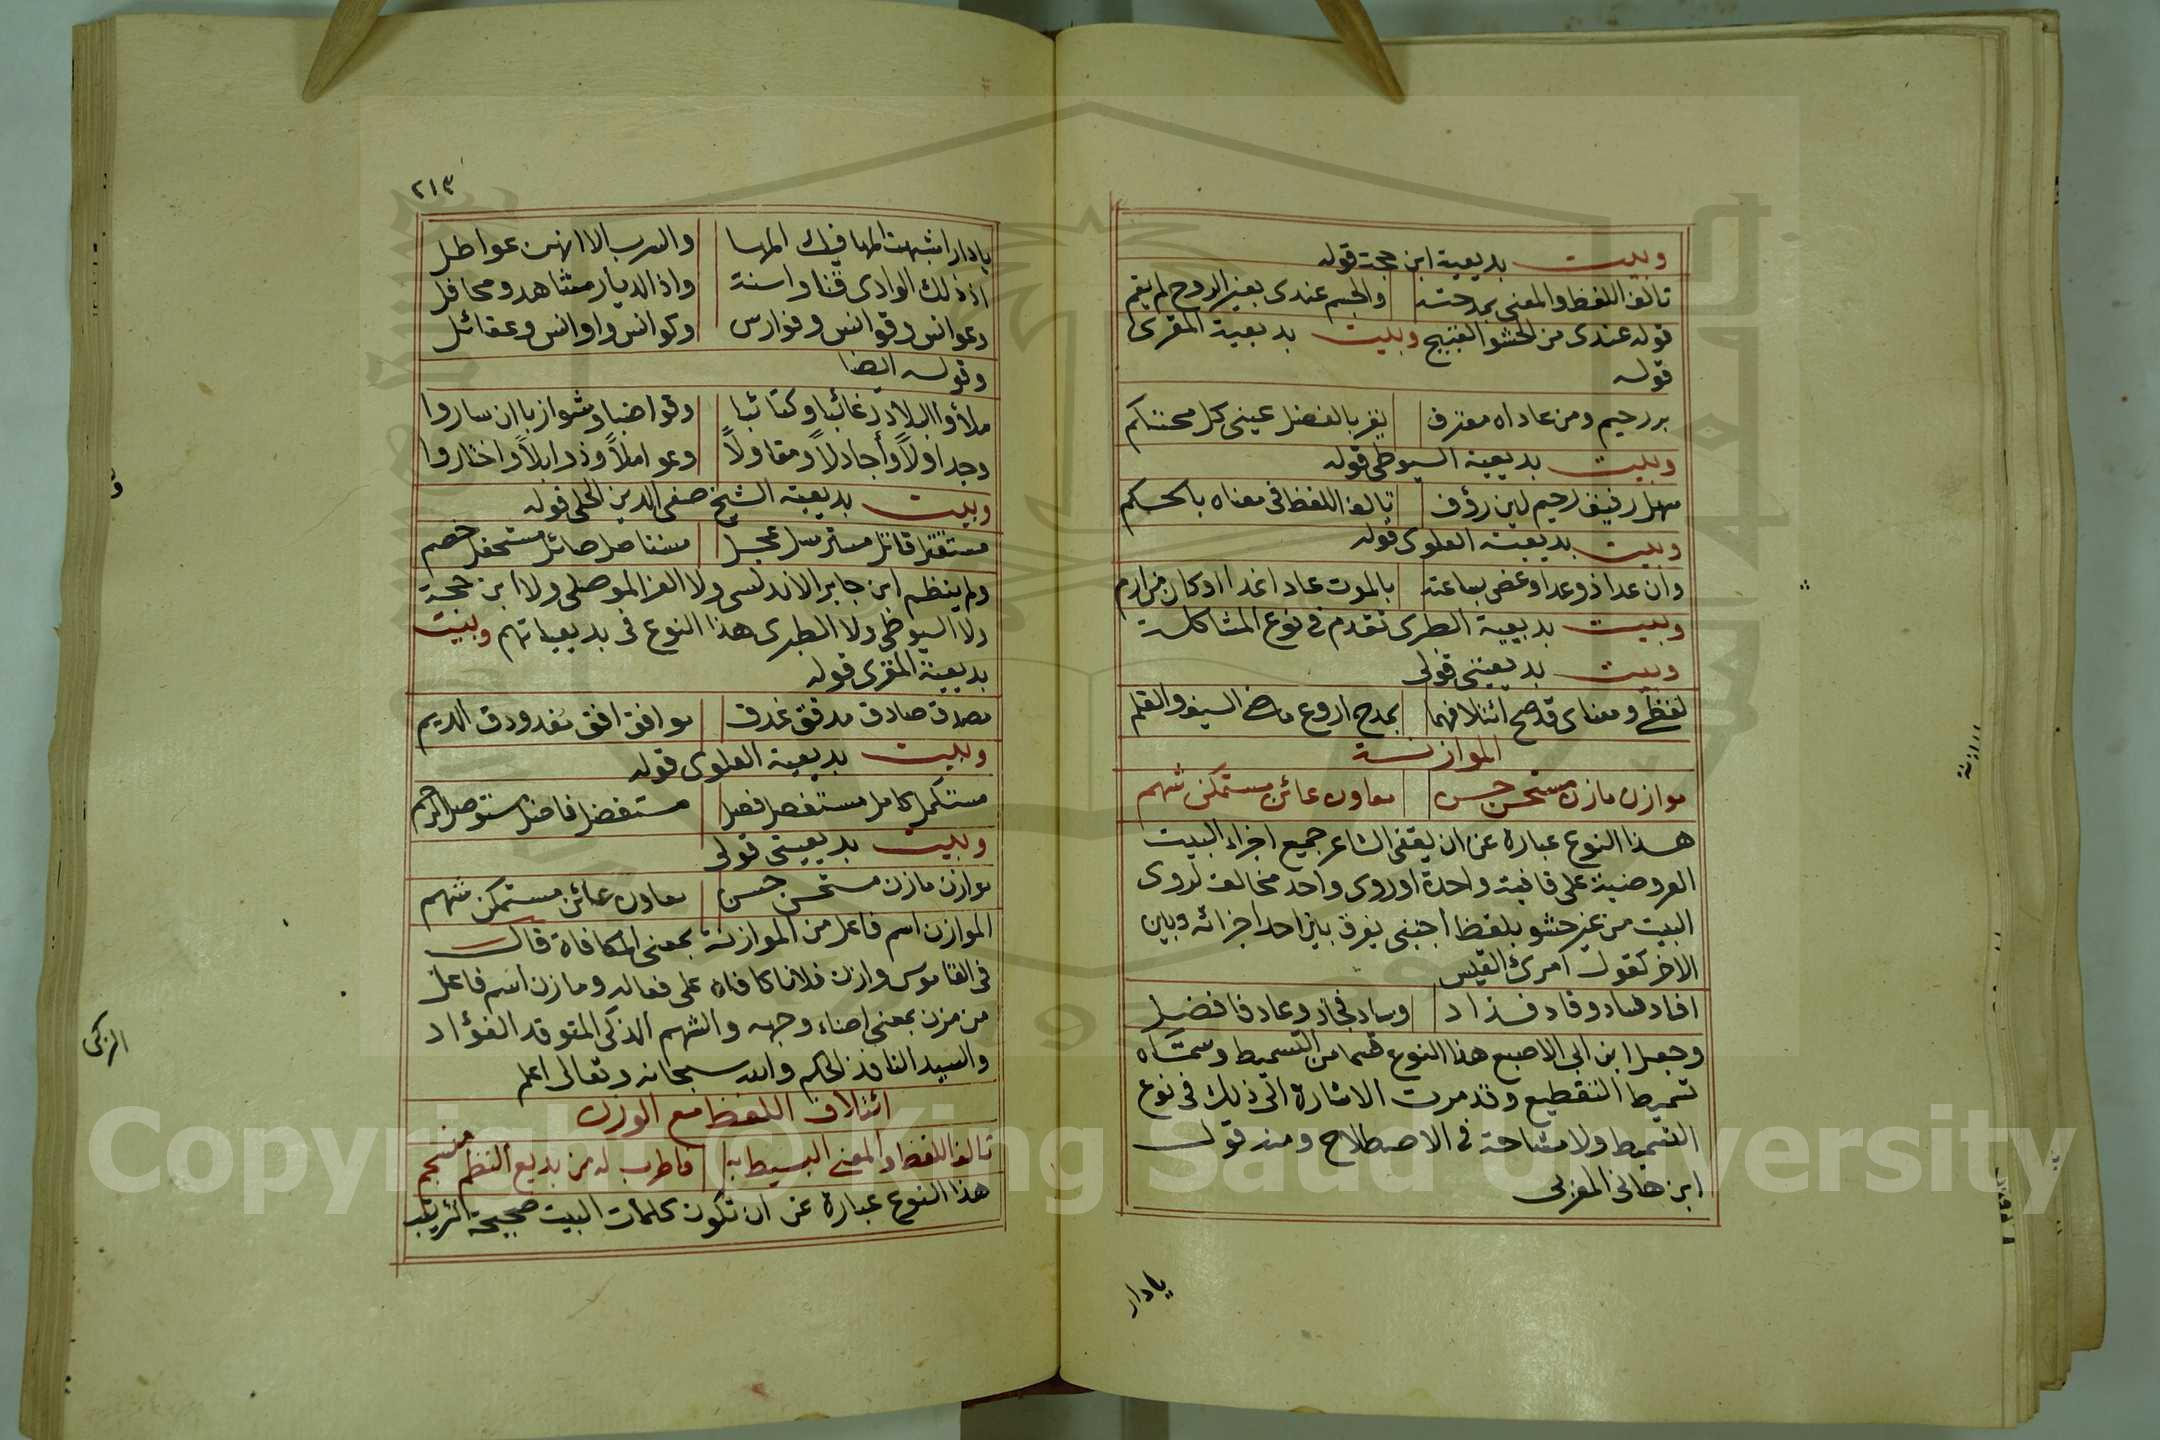 وبيت بديعية ابن حجة قوله
تالف اللفظ والمعنى بمدحته والجسم عندى بغير الروح لم يقم
قوله عندى من الحشو القبيح وبيت بديعية المقرى
قوله
بر رحيم ومن عاداه مقترف يغر بالفضل عينى كل محتكم
وبيت بديعية السيوطى قوله
سهل رفيق رحيم لين رؤف تالف اللفظ فى معناه بالحكم
وبيت بديعية العلوى قوله
وان عدا ذو عدا وغض بساعته بالموت عاد اغدا اوكان من ارم
وبيت بديعية الطبرى تقدم فى نوع المشاكلة
وبيت بديعيتى قولى
لفظى ومعناى قد صح ائتلافهما بمدح اروع ماضى السيف والقلم
الموازنة
موازن مازن مستحسن حسن معاون عائن مستمكن شهم
هذا النوع عبارة عن ان يقفى الشاعر جميع اجزاء البيت
العروضية على قافية واحدة او روى واحد مخالف لروى
البيت من غير حشو بلفظ اجنبى يفرق بين احد اجزائه وبين
الاخر كقول امرئ القيس
افاد فساد وقاد فذاد وساد فجاد وعاد فافضل
وجعل ابن ابى الاصبع هذا النوع قسما من التسميط وسماه
تسميط التقطيع وقد مرت الاشارة الى ذلك فى نوع
التسميط ولا مشاحة فى الاصطلاح ومنه قول
ابن هانى المغربى
يادار
٢١٣
يادار اشبهت المها فيك المها والسرب الا انهن عواطل
اذ ذلك الوادى قنا واسنة واذ الديار مشاهد ومحافل
وعوانس وقوانس وفوارس وكوانس واوانس وعقائل
وقوله ايضا
ملأوا البلاد رغائبا وكتائبا وقواضبا وشوازبا ان ساروا
وجداولاً وأجادلاً ومقاولاً وعواملاً وذوابلاً واختاروا
وبيت بديعية الشيخ صفى الدين الحلى قوله
مستقتل قاتل مسترسل عجل مستاصل صائل مستحفل خصم
ولم ينظم ابن جابر الاندلسى ولا العز الموصلى ولا ابن حجة
ولا السيوطى ولا الطبرى هذا النوع فى بديعياتهم وبيت
بديعية المقرى قوله
مصدق صادق مدفق غدق موافق افق مغدودق الديم
وبيت بديعية العلوى قوله
مستكمل كامل مستفصل فصل مستفضل فاضل مستوصل الرحم
وبيت بديعيتى قولى
موازن مازن مستحسن حسن معاون عائن مستمكن شهم
الموازن اسم فاعل من الموازنة بمعنى المكافاة قال
فى القاموس وازن فلانا كافاه على فعاله ومازن اسم فاعل
من مزن بمعنى اضاء وجهه والشهم الذكى المتوقد الفؤاد
والسيد النافذ الحكم والله سبحانه وتعالى اعلم
ائتلاف اللفظ مع الوزن
تالف اللفظ والمعنى البسيط به فاطرب له من بديع النظم منسجم
هذا النوع عبارة عن ان تكون كلمات البيت صحيحة الترتيب
Copyright (c) King Saud University